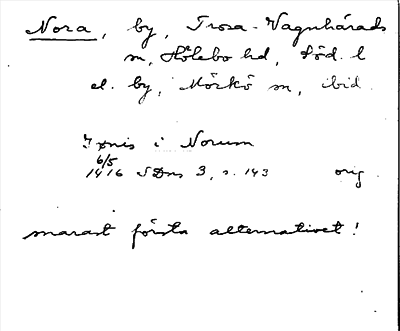 Nora, by, Trosa-Vagnhärads
sn, Hölebo hd, Söd. l
el. by, Mörkö sn, ibid.
i Norum
6/5
1416 SDns 3, s. 143 orig.
snarast första alternativet!